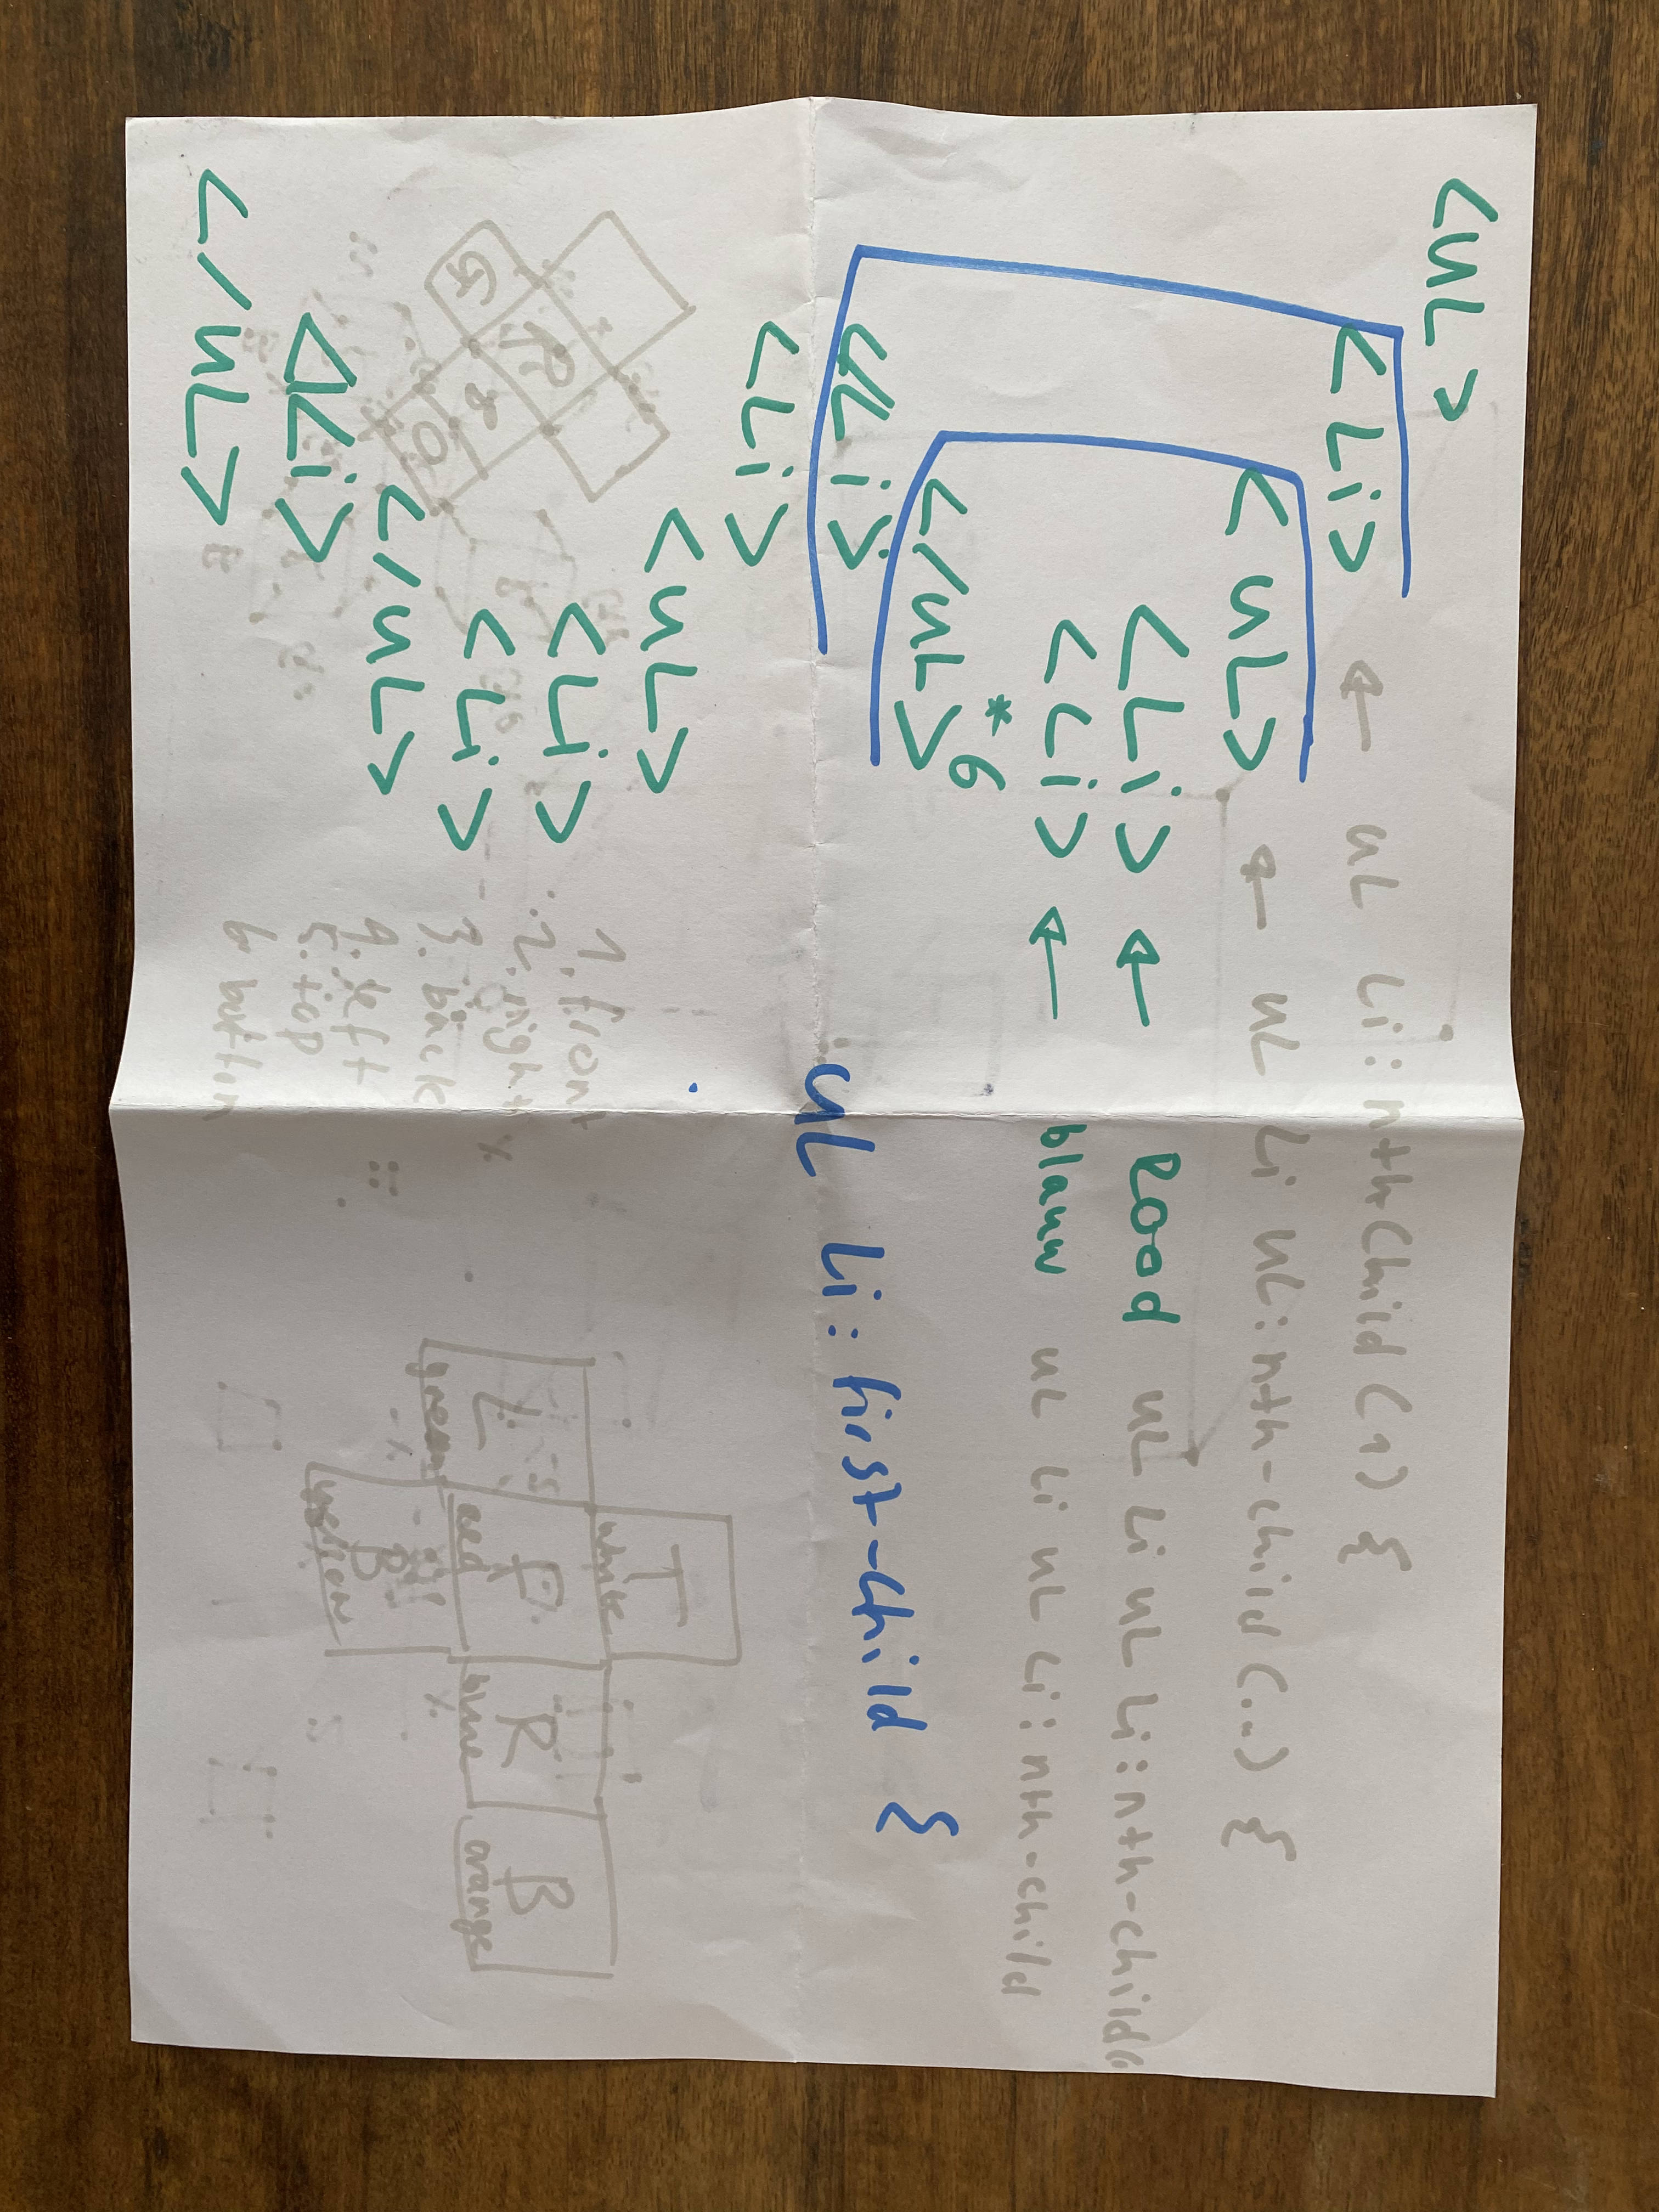 <UL>
<Li> ← UL Li:nthChild(1) {
<UL> ← UL Li UL:nth-child(..) {
<Li> ← Rood UL Li UL Li:nth-child(
<Li> ← blauw UL Li UL Li:nth-child
*6
</UL>
</Li>
UL Li:first-child {
<Li>
<UL>
<Li>
<Li>
</UL>
</Li>
</UL>
G R B O
1. front
2. right
3. back
4. left
5. top
6 bottom
T
white
L F R B
green red blue orange
B
yellow